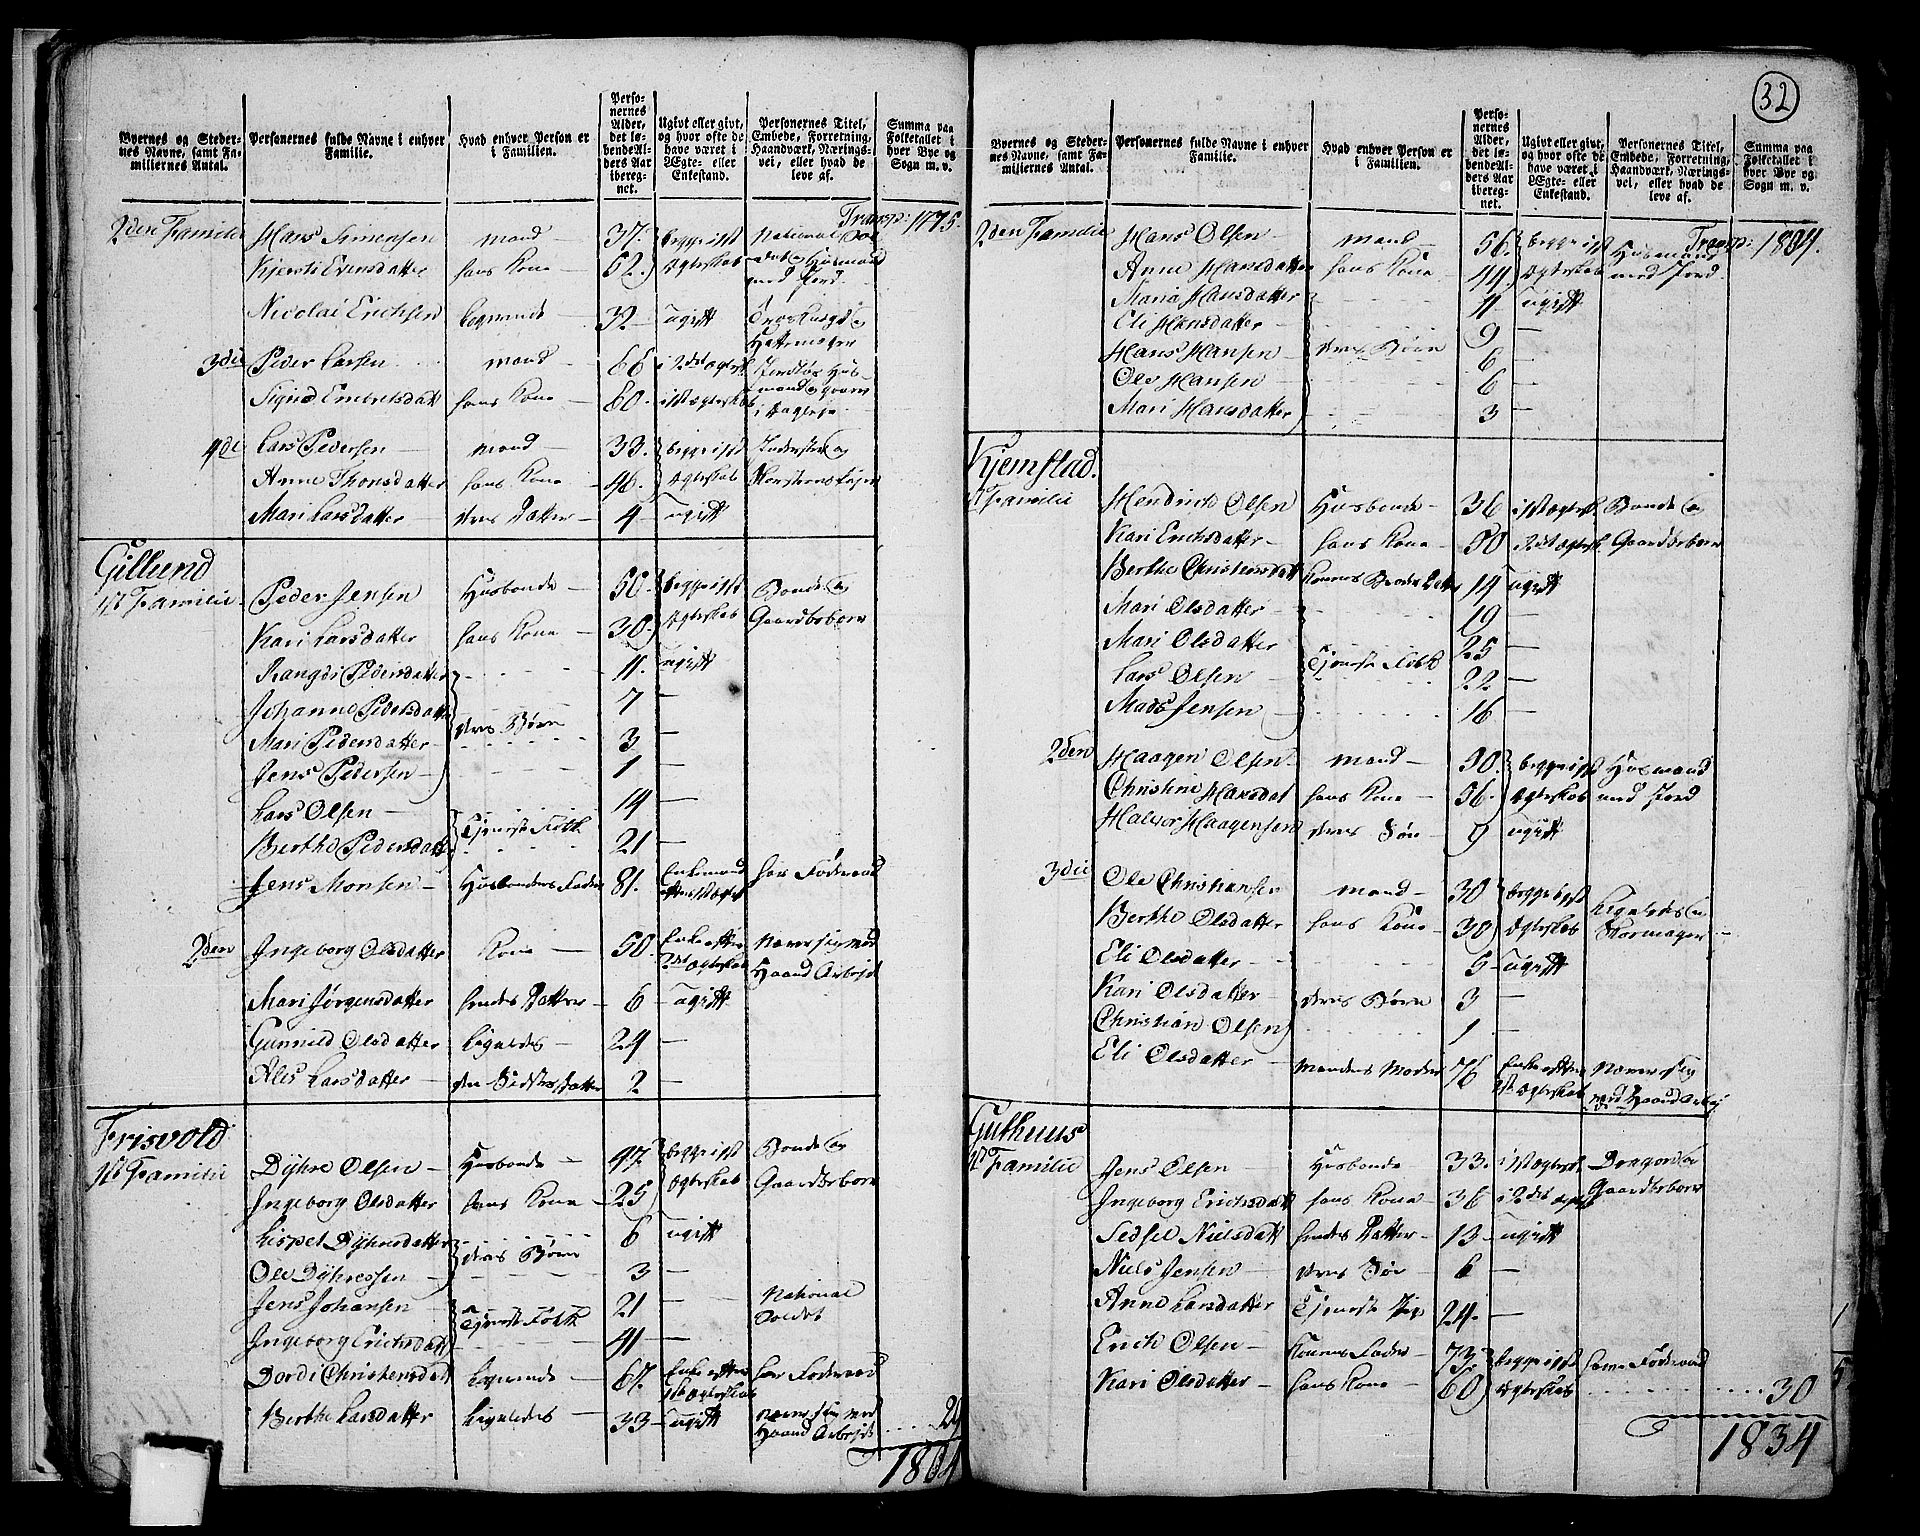 32
Byernes og Steder-
nes Navne, samt Fa-
miliernes Antal.
Personernes fulde Navne i enhver
Familie.
Hvad enhver Person er
i Familien.
Perso-
nernes
Alder,
det lø-
bende Al-
ders Aar
iberegnet.
Ugivt eller givt,
og hvor ofte de
have været i
Ægte- eller
Enkestand.
Personernes Titel,
Embede, Forretning,
Haandværk, Nærings-
vei, eller hvad de
leve af.
Summa paa
Folketallet i
hver Bye og
Sogn m. v.
Transp: 1775.
2den Familie Hans Simensen mand 37. begge i 1st National Sol-
Kjersti Evensdatter hans Kone 52. Ægteskab dat og Huusmand
med Jord
Nicolai Erichsen logerende 32 ugift
Hattemager
3die Peder Larsen mand 66 i 2det Ægtesk
Sigrid Embretsdatt hans Kone 60. i 1st Ægteskab
4de Lars Pedersen mand 33. begge i 1st Inderster og
Anne Thorsdatter hans Kone 46. Ægteskab
Mari Larsdatter deres Datter 4 ugift
Gillund
1st Familie Peder Jensen Husbonde 50. begge i 1st Bonde og
Kari Larsdatter hans Kone 30. Ægteskab Gaardbeboer
Rangdi Pedersdatter 11. ugift
Johanne Pedersdatter 7 —
Mari Pedersdatter deres Børn 3 —
Jens Pedersen 1 —
Lars Olsen 14 —
Berthe Pedersdatt Tjeneste Folk 21 —
Jens Monsen Husbondens Fader 81. Enkemand har Føderaad
efter 1st Ægtesk
2den Ingeborg Olsdatter Kone 50. Enke efter Nærer sig med
2det Ægteskab Haand Arbejde
Mari Jørgensdatter hendes Datter 6 ugift
Gunnild Olsdatter ligeledes 24 —
Alis Larsdatter den Sidstes Datter 2 —
Frisvold
1st Familie Dÿhre Olsen Husbonde 47. begge i 1st Bonde og
Ingeborg Olsdatter hans Kone 25 Ægteskab Gaardbeboer
Lispet Dÿhresdatter 6 ugift
Ole Dÿhressen deres Børn 3 —
Jens Johansen 21 — National
Soldat
Ingeborg Erichsdatt Tjeneste Folk 41 —
Dordi Christensdatt logerende 67. Enke efter har Føderaad
1st Ægteskab
Berthe Larsdatter ligeledes 33 ugift nærer sig med
Haand Arbejde 29
1804
Byernes og Steder-
nes Navne, samt Fa-
miliernes Antal.
Personernes fulde Navne i enhver
Familie.
Hvad enhver Person er
i Familien.
Perso-
nernes
Alder,
det lø-
bende Al-
ders Aar
iberegnet.
Ugivt eller givt,
og hvor ofte de
have været i
Ægte- eller
Enkestand.
Personernes Titel,
Embede, Forretning,
Haandværk, Nærings-
vei, eller hvad de
leve af.
Summa paa
Folketallet i
hver Bye og
Sogn m. v.
Transp: 1804.
2den Familie Hans Olsen mand 56. begge i 1st Huusmand
Anne Hansdatter hans Kone 44. Ægteskab med Jord
Maria Hansdatter 11 ugift
Eli Hansdatter 9 —
Hans Hansen deres Børn 6 —
Ole Hansen 6 —
Mari Hansdatter 3 —
Kjemstad.
1st Familie Hendrich Olsen Husbonde 36 i 1st Ægtesk Bonde og
Kari Erichsdatter hans Kone 50 2det Ægtesk Gaardbeboer
Berthe Christensdatt Konens Broder Datter 14 ugift
Mari Olsdatter 19 —
Mari Olsdatter 25 —
Lars Olsen Tjeneste Folk 22 —
Mads Jensen 16 —
2den Haagen Olsen mand 30. begge i 1st Huusmand
Christine Hansdat hans Kone 36. Ægteskab med Jord
Halvor Haagensen deres Søn 9 ugift
3die Ole Christiansen mand 30 begge i 1st Ligeledes og
Berthe Olsdatter hans Kone 30 Ægteskab Skomager
Eli Olsdatter 5 ugift
Kari Olsdatter deres Børn 3 —
Christian Olsen 1 —
Eli Olsdatter Mandens Moder 76 Enke efter Nærer sig
1st Ægteskab med Haand Arbej
Guthuus
1st Familie Jens Olsen Husbonde 33. i 1st Ægtesk Dragon og
Ingeborg Erichsdatt hans Kone 36 i 2det Ægtesk Gaardbeboer
Sedsel Nielsdatt hendes Datter 13 ugift
Niels Jensen deres Søn 6 —
Anne Larsdatter Tjeneste Pige 24. —
Erich Olsen Konens Fader 73. begge i 1st have Føderaad
Kari Olsdatter hans Kone 60 Ægteskab 30
1834